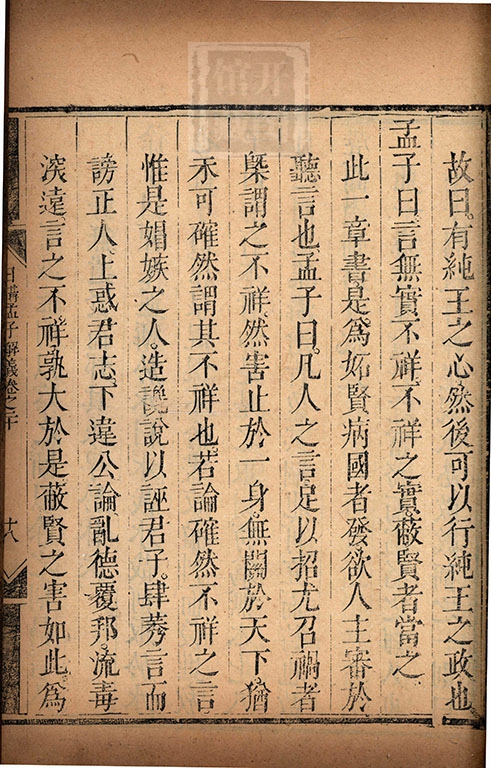 故曰有純王之心然後可以行純王之政也
孟子曰言無實不祥不祥之實蔽賢者當之
此一章書是爲妬賢病國者發欲人主審於
聽言也孟子曰凡人之言足以招尤召禍者
槩謂之不祥然害止於一身無關於天下猶
未可確然謂其不祥也若論確然不祥之言
惟是娼嫉之人造讒說以誣君子肆莠言而
謗正人上惑君志下違公論亂德覆邦流毒
深遠言之不祥孰大於是蔽賢之害如此爲
日講孟子解義卷之二十
十八